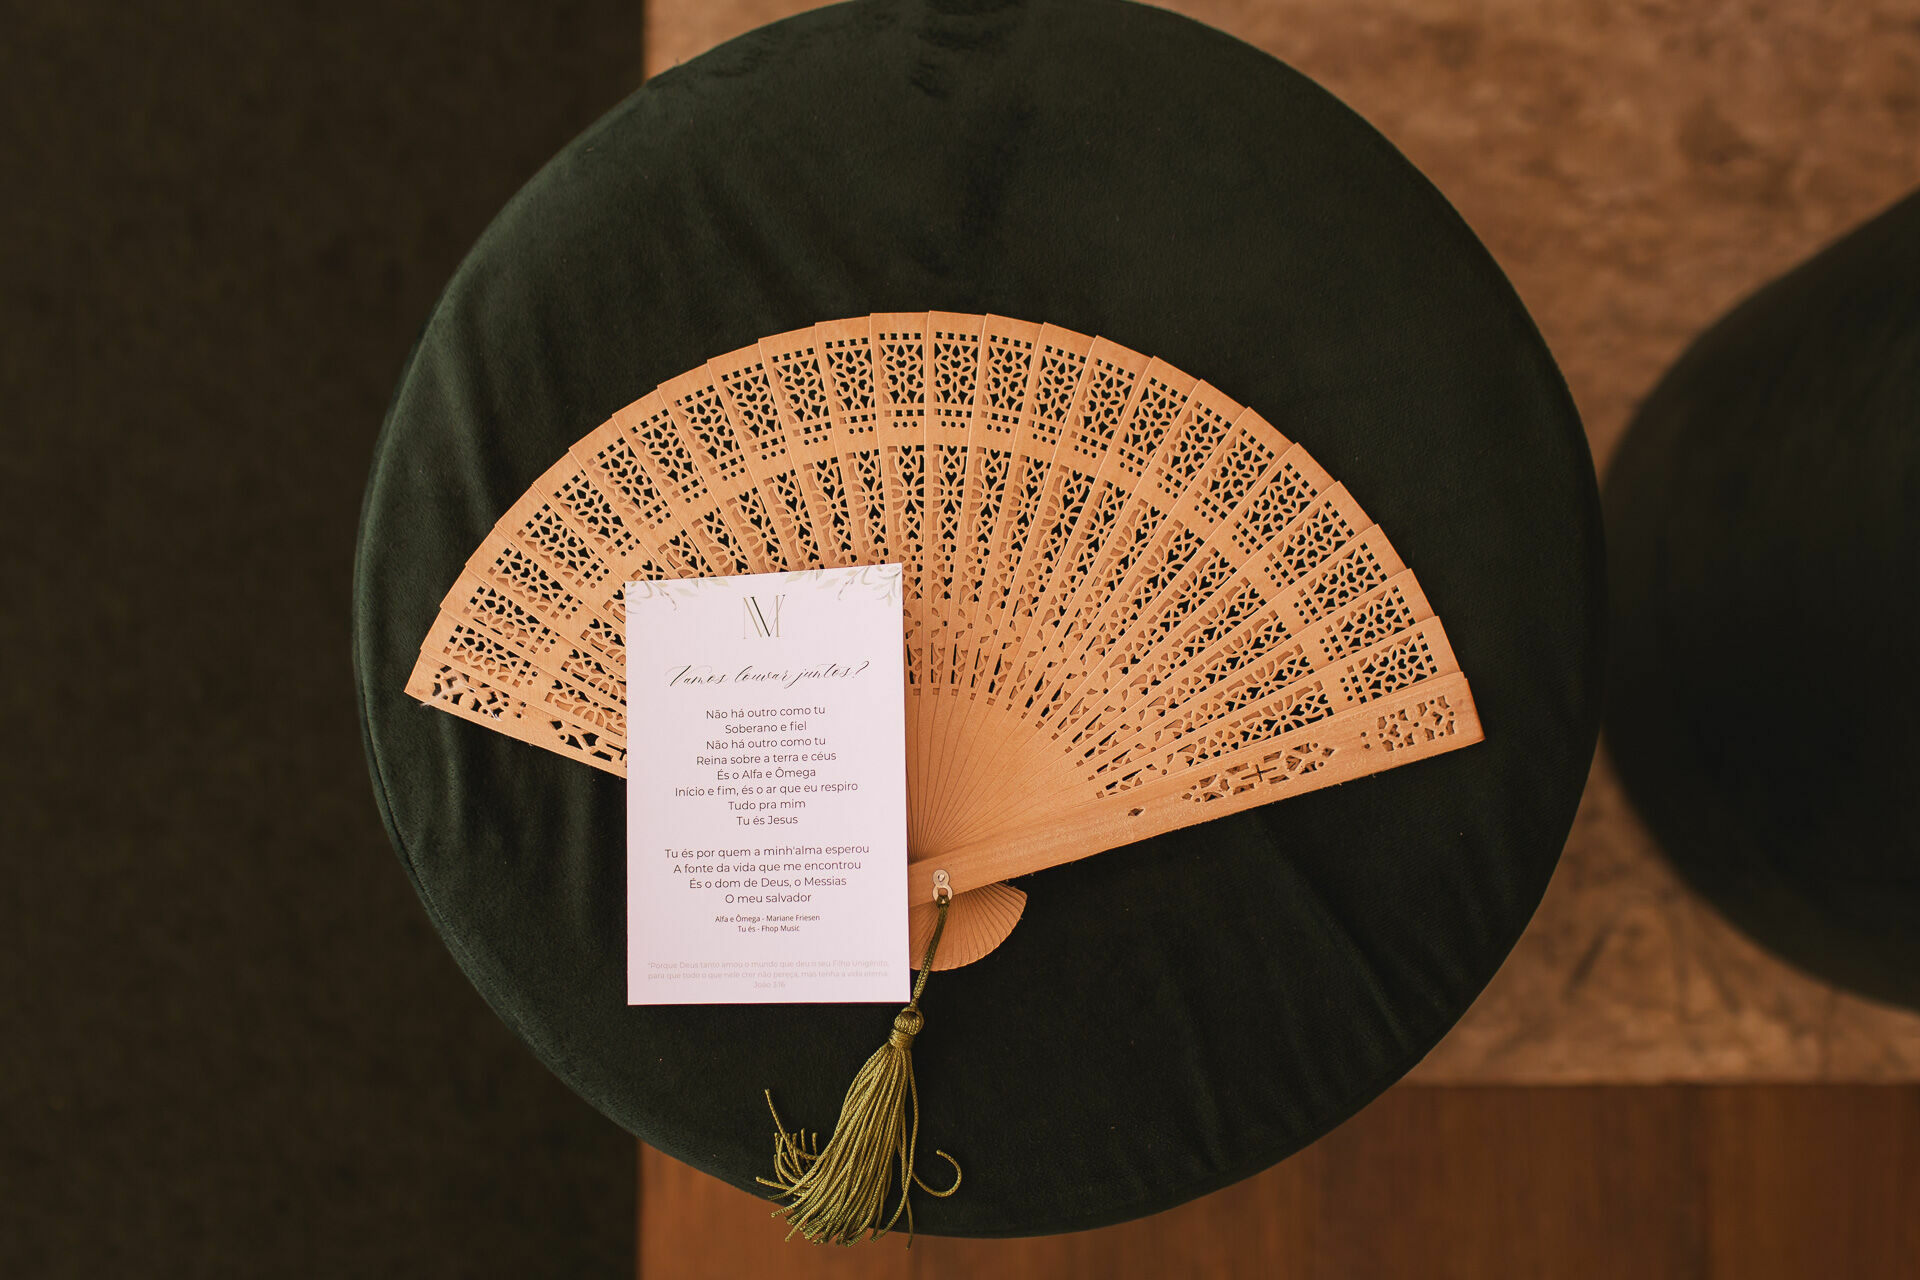 NM
Vamos louvar juntos?
Não há outro como tu
Soberano e fiel
Não há outro como tu
Reina sobre a terra e céus
És o Alfa e Ômega
Início e fim, és o ar que eu respiro
Tudo pra mim
Tu és Jesus
Tu és por quem a minh'alma esperou
A fonte da vida que me encontrou
És o dom de Deus, o Messias
O meu salvador
Alfa e Ômega - Mariane Friesen
Tu és - Fhop Music
"Porque Deus tanto amou o mundo que deu o seu Filho Unigênito,
para que todo o que nele crer não pereça, mas tenha a vida eterna.
João 3:16